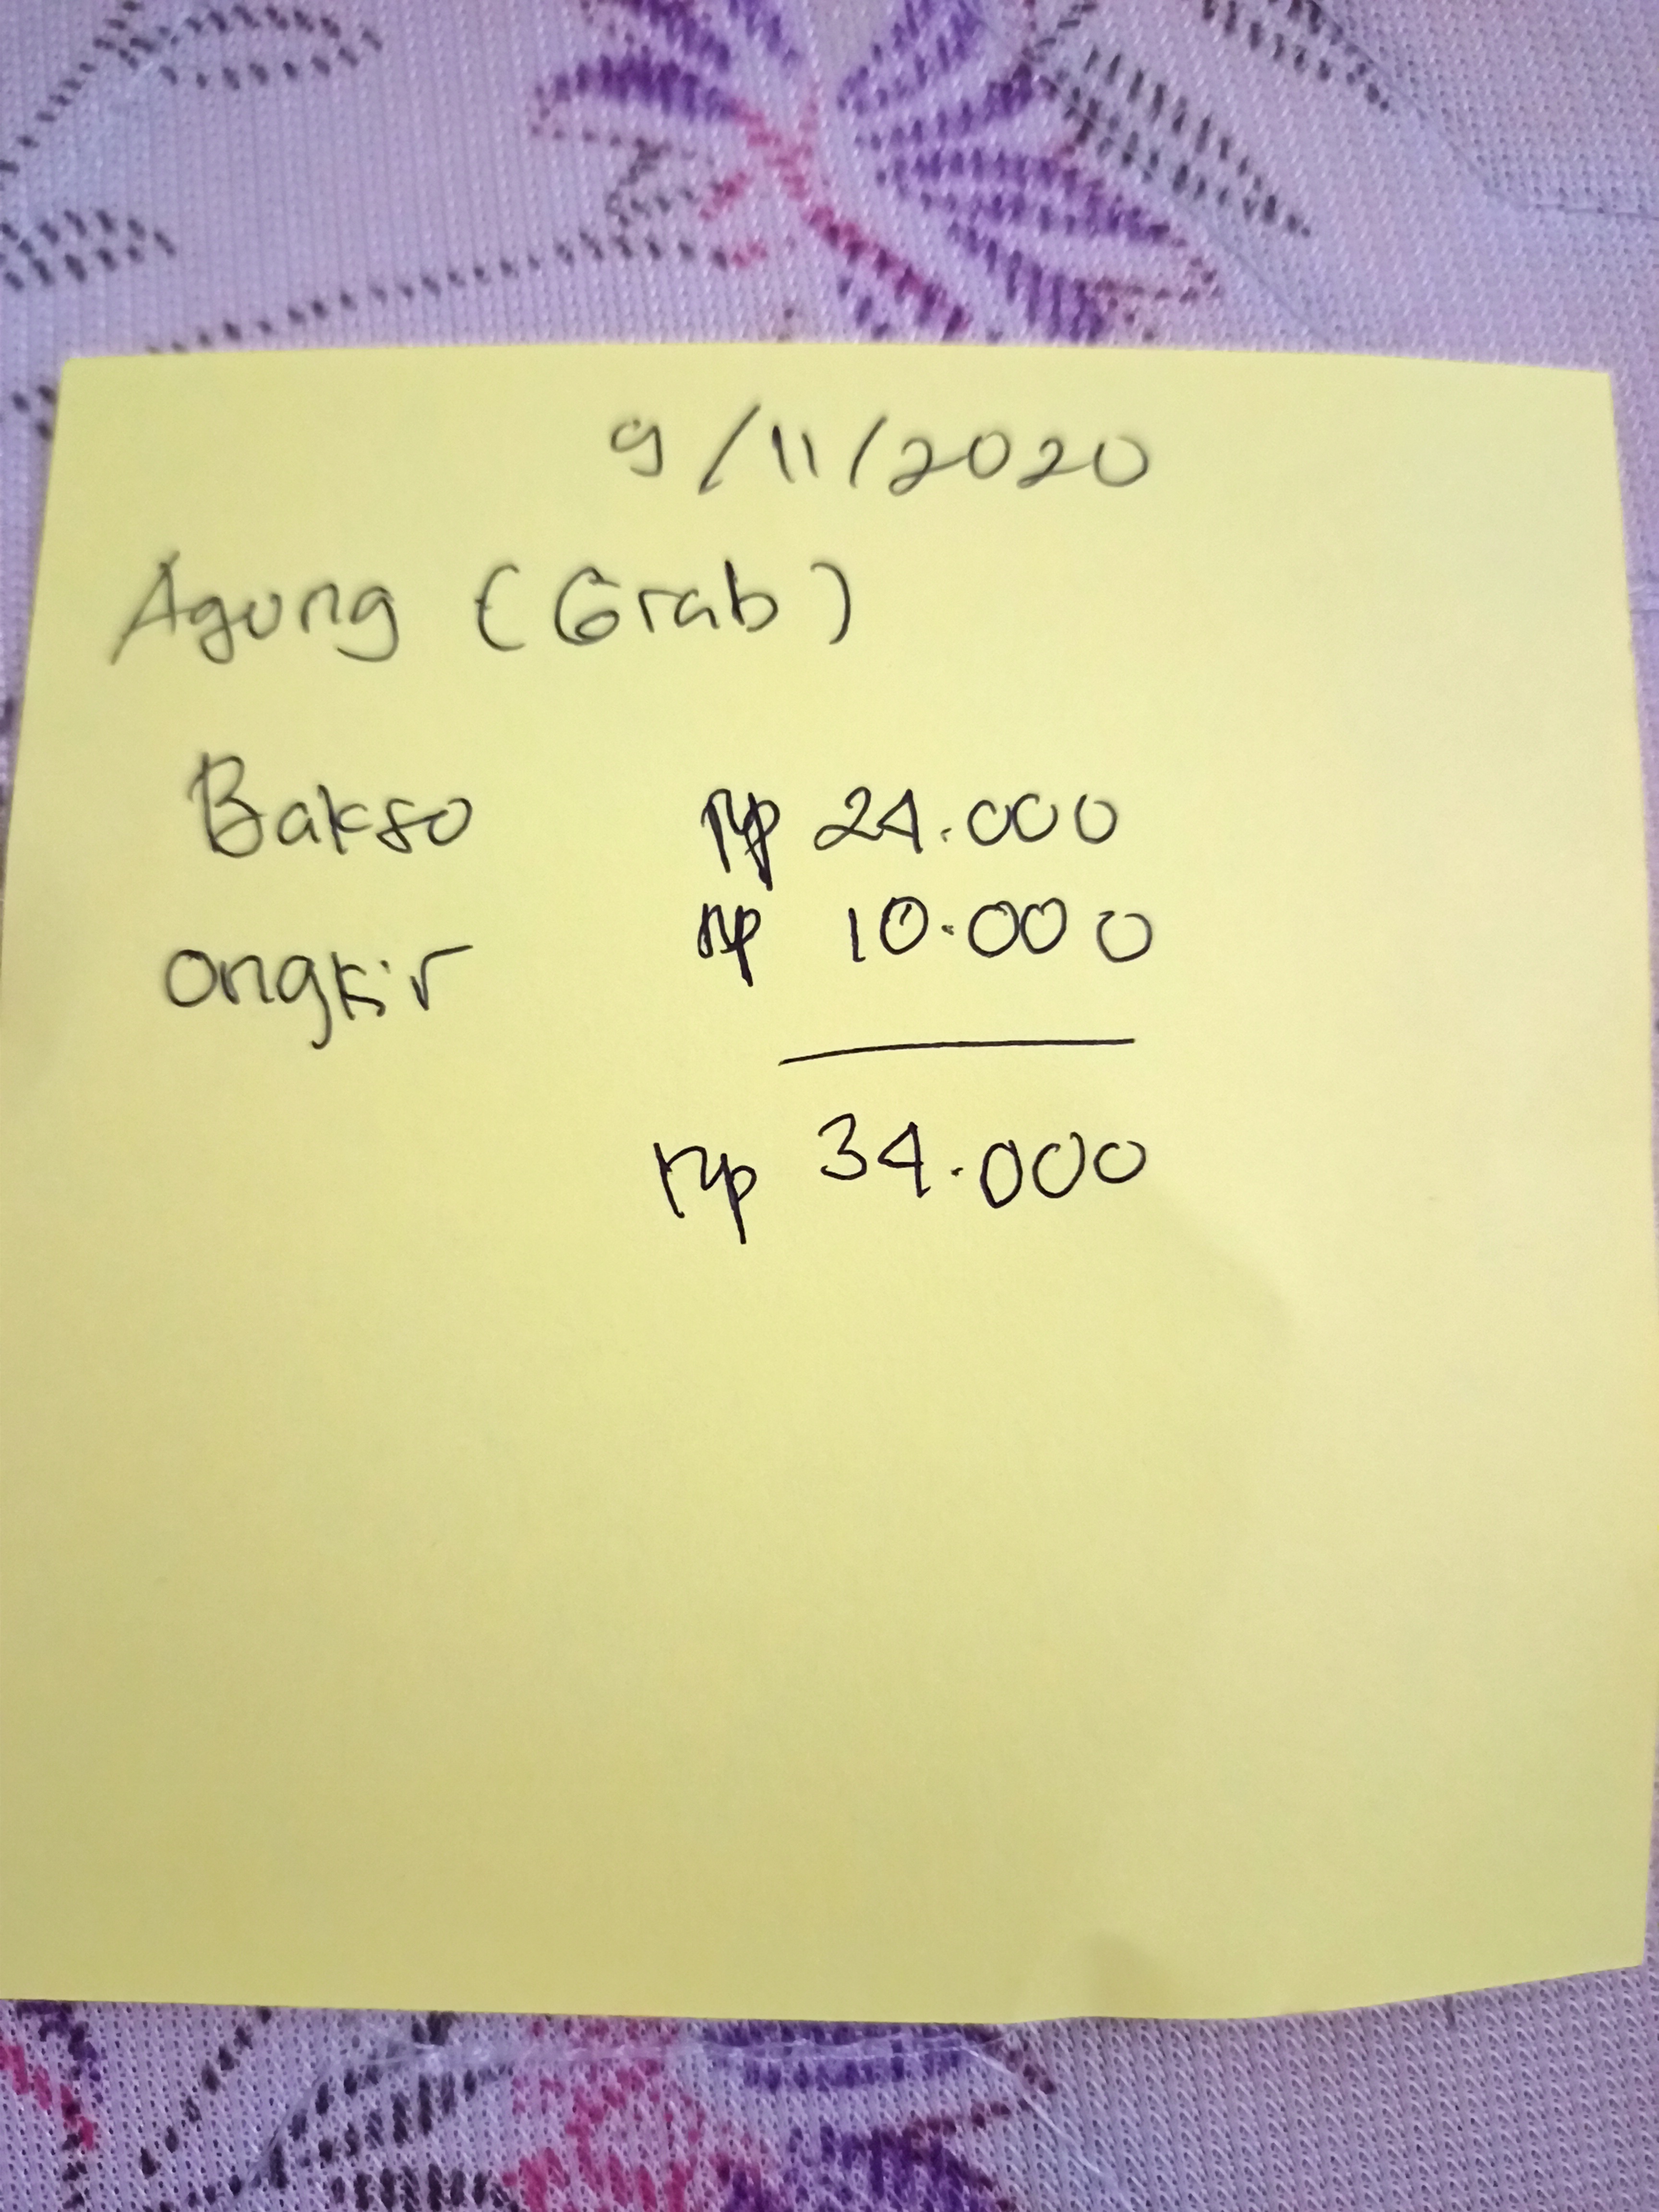 9/11/2020
Agung (Grab)
Bakso Rp 24.000
ongkir Rp 10.000
Rp 34.000